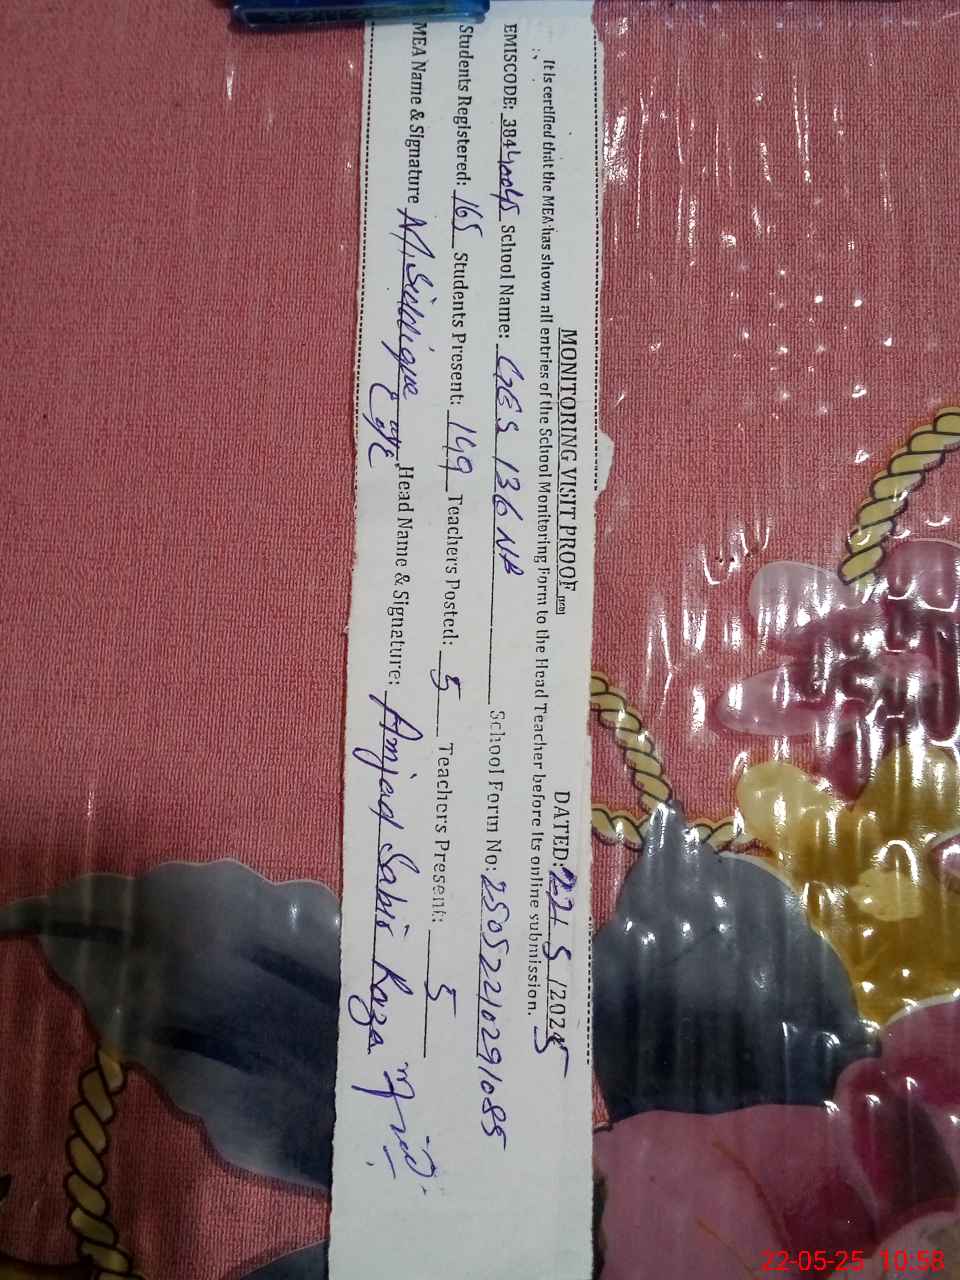 MONITORING VISIT PROOF DATED: 22/ 5 /2025
It is certified that the MEA has shown all entries of the School Monitoring Form to the Head Teacher before its online submission.
EMISCODE: 38440045 School Name: GES 136 NB School Form No: 25052210291085
Students Registered: 165 Students Present: 149 Teachers Posted: 5 Teachers Present: 5
MEA Name & Signature M. Siddique Head Name & Signature: Amjad Sabir Raza
22-05-25 10:58